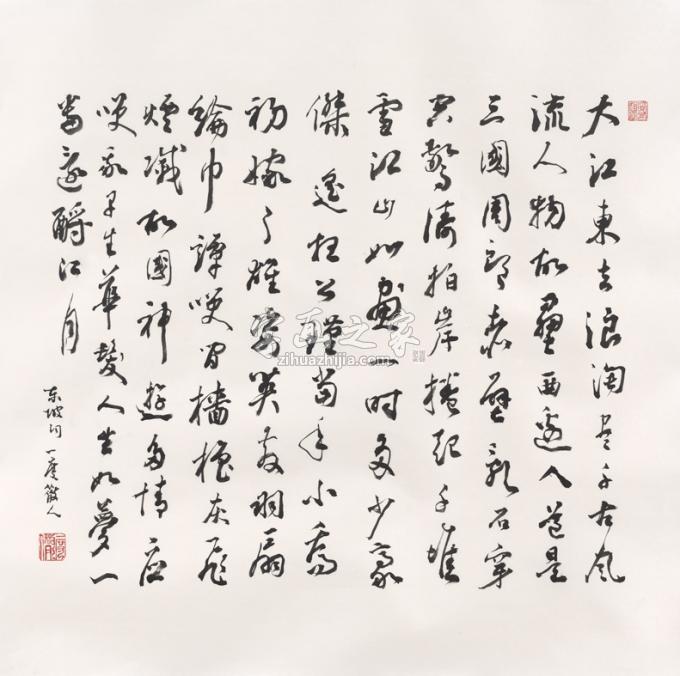 大江東去浪淘盡千古風
流人物故壘西邊人道是
三國周郎赤壁亂石穿
空驚濤拍岸捲起千堆
雪江山如畫一時多少豪
傑遙想公瑾當年小喬
初嫁了雄姿英發羽扇
綸巾譚咲間檣櫓灰飛
煙滅故國神遊多情應
咲我早生華髮人生如夢一
尊還酹江月
东坡词 一度散人
字画之家
zihuazhijia.com